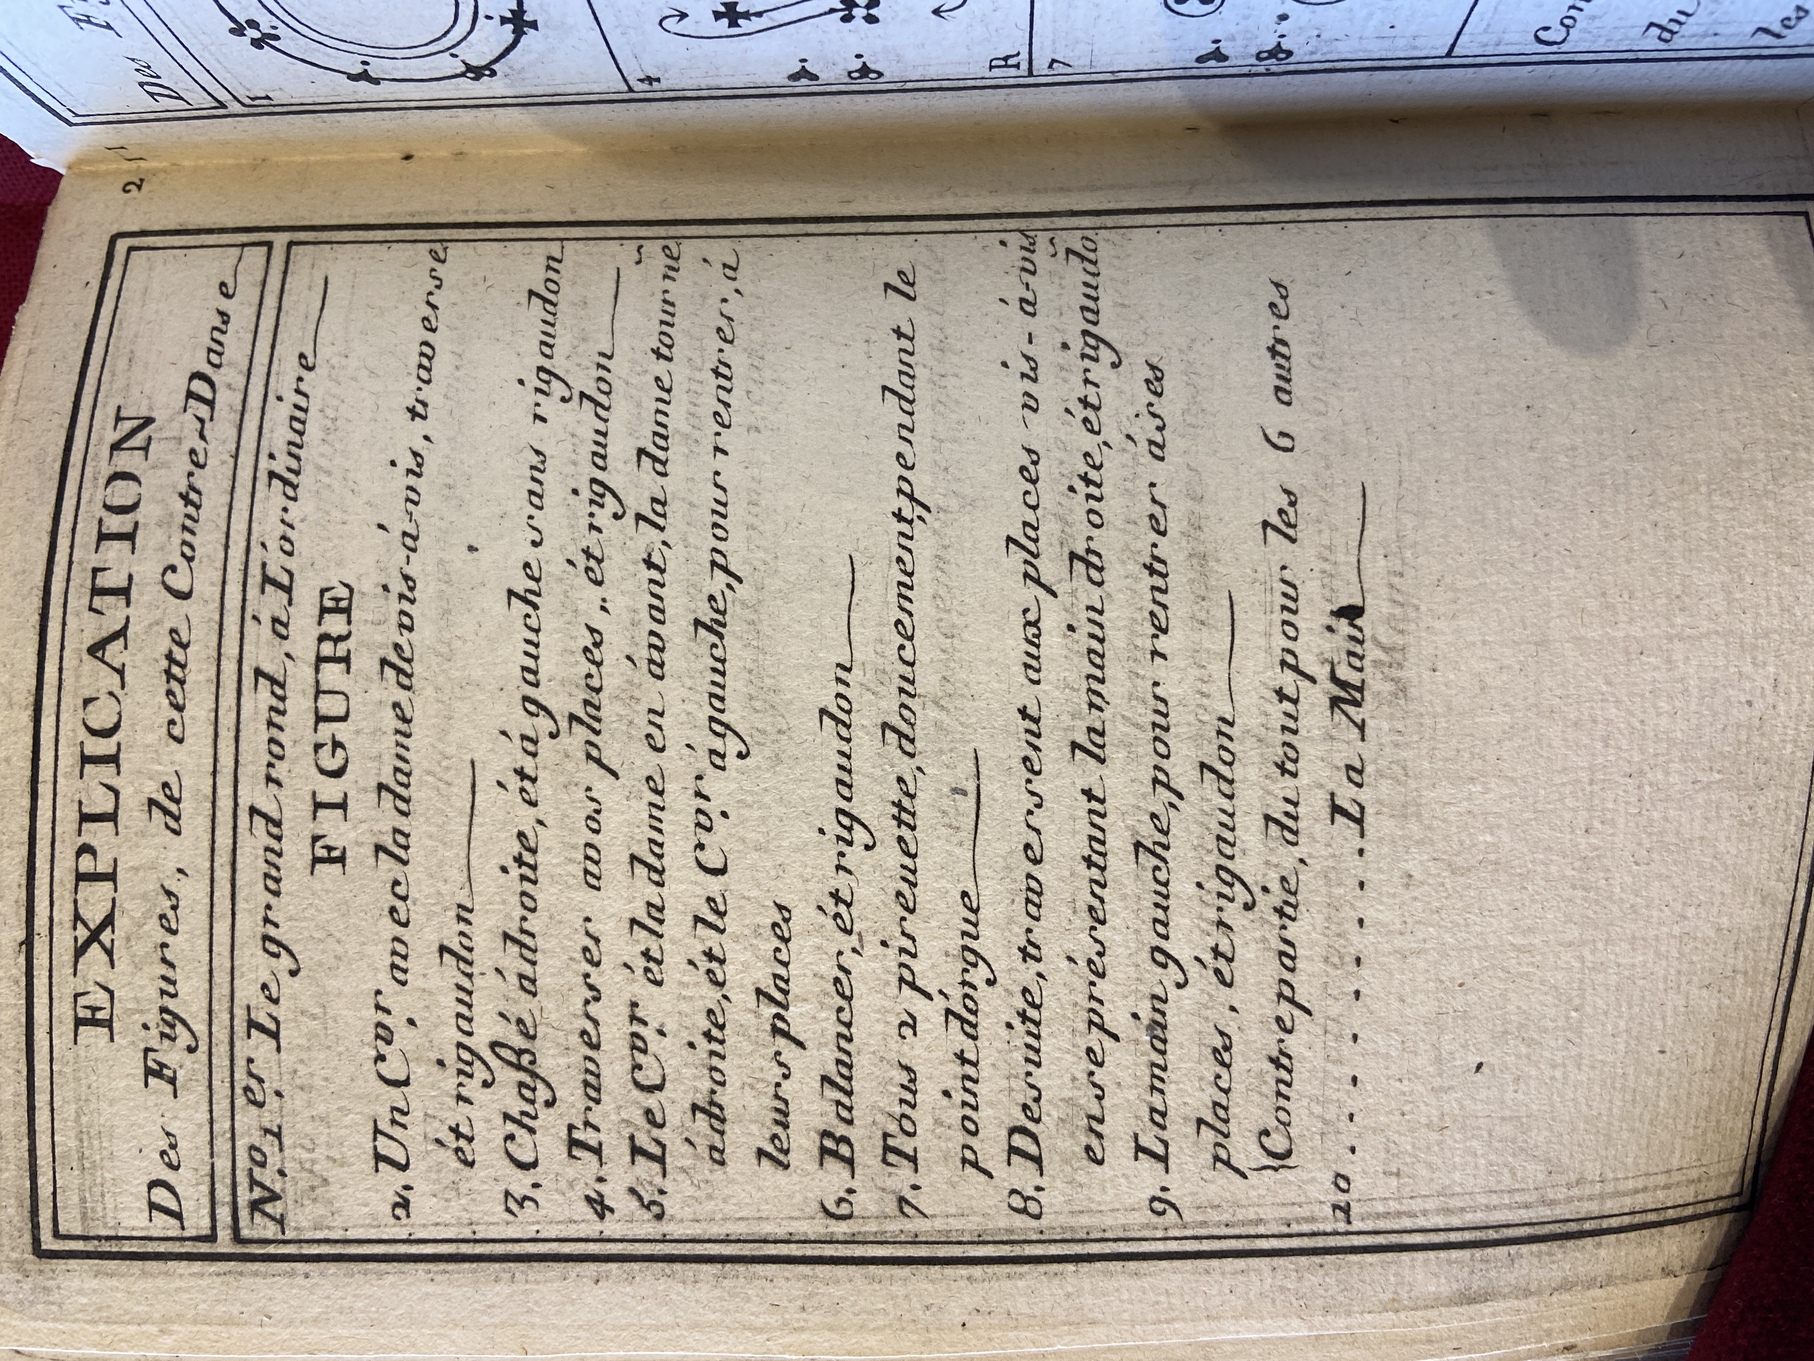 211
EXPLICATION
Des Figures, de cette ContreDanse
N.º 1.er Le grand rond, á L'ordinaire
FIGURE
2. Un C.vor avec la dame de vis-á-vis, traverse
ét rigaudon
3. Chaßé ádroite, ét á gauche sans rigaudon
4. Traverser a vos places, ét rigaudon
5. Le C.vr ét la dame en ávant, la dame tourne
ádroite, ét le C.vr ágauche, pour rentrer, á
leurs places
6. Balancer, ét rigaudon
7. Tous 2 pireuette, doucement, pendant le
point d'orgue
8. Desuite, traversent aux places vis-á-vis
en se présentant la main droite, ét rigaudõ
9. La main gauche, pour rentrer áses
places, ét rigaudon
Contrepartie, du tout pour les 6 autres
10 . . . . . . . . La Main
Des
1
4
R
7
Con
du
les